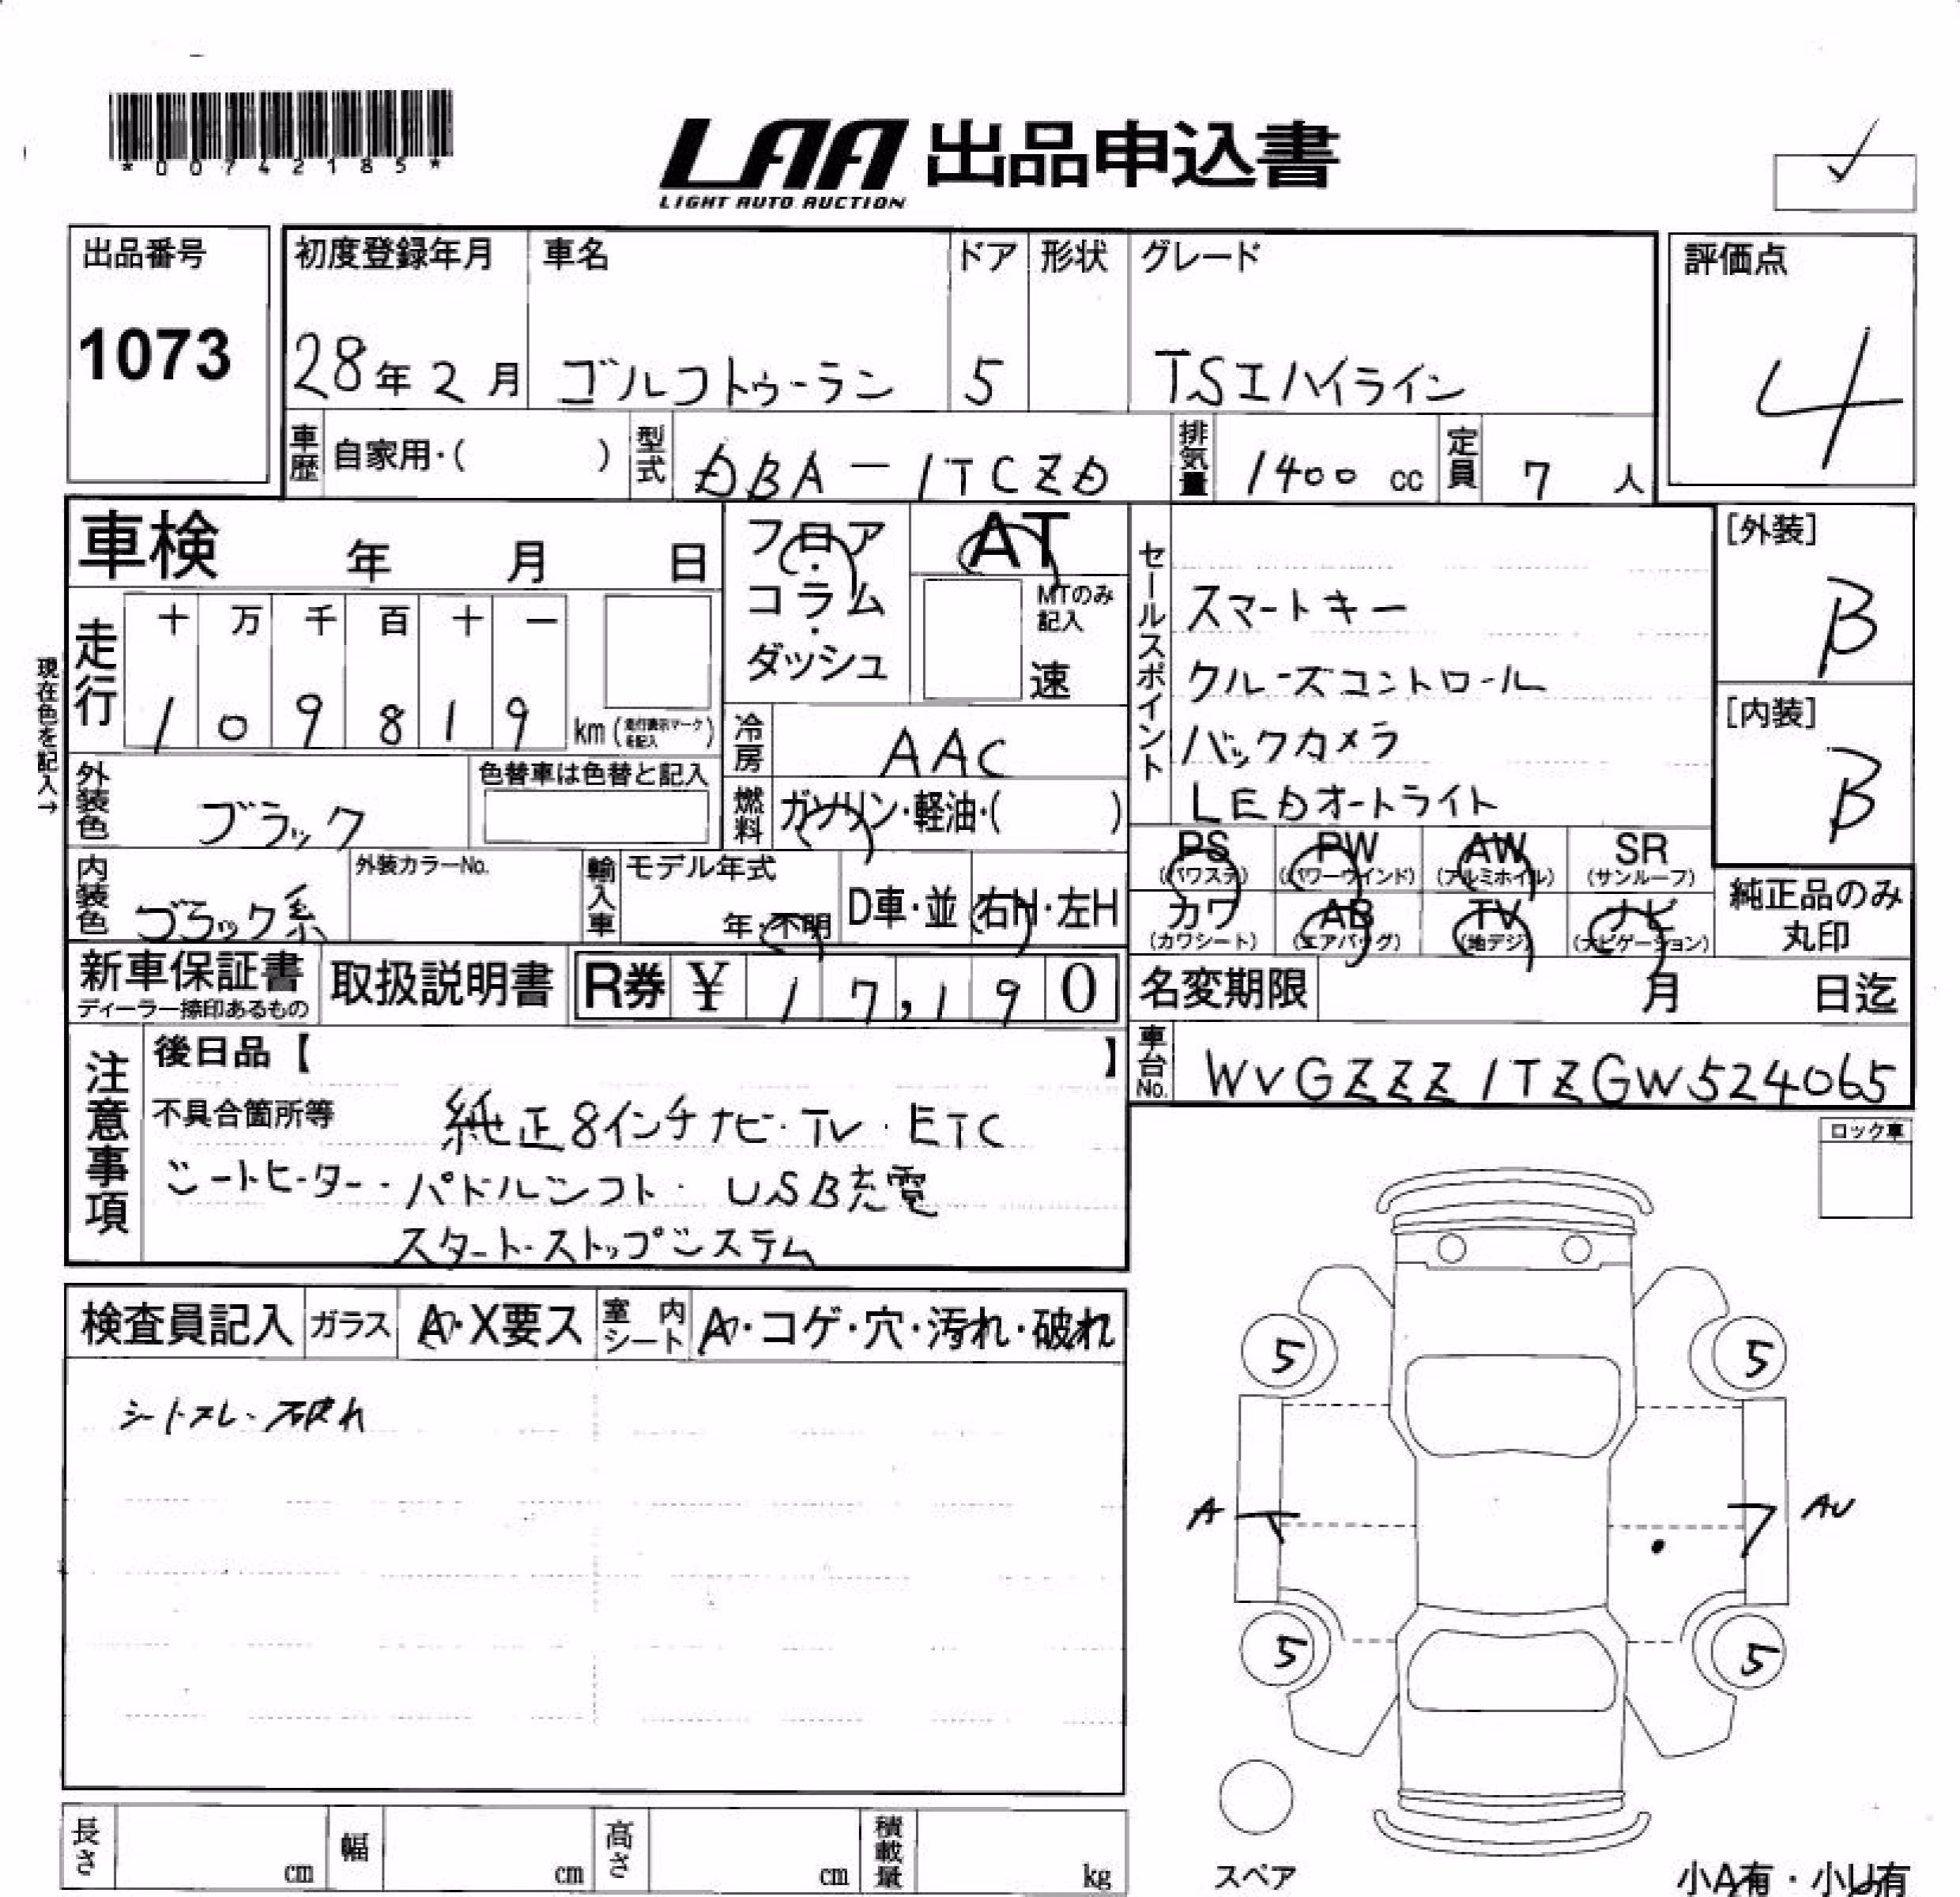 *00742185*
LAA 出品申込書
LIGHT AUTO AUCTION
出品番号
1073
初度登録年月
28年2月
車名
ゴルフトゥーラン
ドア
5
形状
グレード
TSIハイライン
評価点
4
車歴 自家用・( )
型式 DBA-1TCZD
排気量 1400 cc
定員 7 人
車検 年 月 日
フロア・コラム・ダッシュ
AT
MTのみ記入
速
セールスポイント
スマートキー
クルーズコントロール
バックカメラ
LEDオートライト
[外装]
B
[内装]
B
現在色を記入→
走行
十 万 千 百 十 一
1 0 9 8 1 9 km (走行表示マークを記入)
冷房 AAC
燃料 ガソリン・軽油・( )
外装色 ブラック
色替車は色替と記入
内装色 ブラック系
外装カラーNo.
輸入車 モデル年式
年・不明
D車・並 右H・左H
PS (パワステ)
PW (パワーウインド)
AW (アルミホイル)
SR (サンルーフ)
カワ (カワシート)
AB (エアバッグ)
TV (地デジ)
ナビ (ナビゲーション)
純正品のみ丸印
新車保証書
ディーラー捺印あるもの
取扱説明書
R券 ¥ 17,190
名変期限 月 日迄
車台No. WVGZZZ1TZGW524065
注意事項
後日品【 】
不具合箇所等 純正8インチナビ・TV・ETC
シートヒーター・パドルシフト・USB充電
スタート・ストップシステム
ロック車
検査員記入 ガラス A・X要ス 室内シート A・コゲ・穴・汚れ・破れ
シートスレ・破れ
5 5
A AU
5 5
スペア
長さ cm 幅 cm 高さ cm 積載量 kg
小A有・小U有